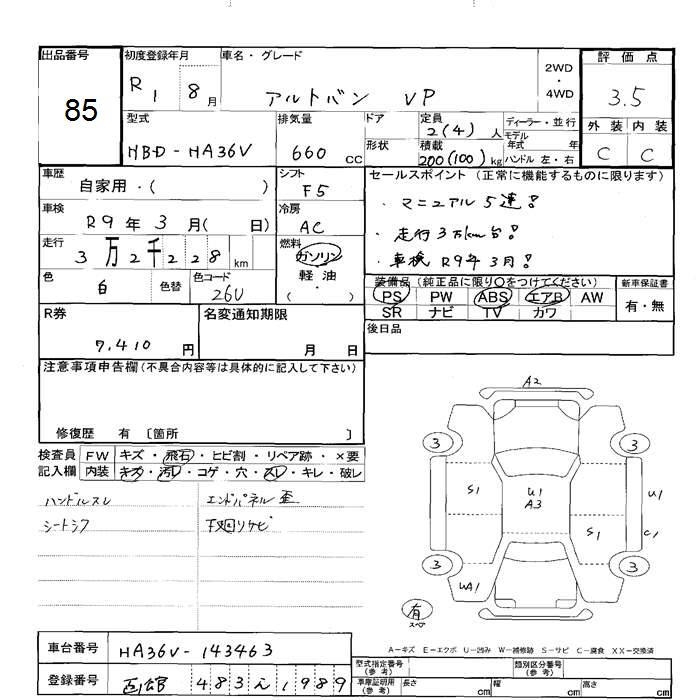 出品番号
85
初度登録年月
R1 8月
車名・グレード
アルトバン VP
2WD・4WD
評価点
3.5
外装 内装
C C
型式
HBD-HA36V
排気量
660 cc
ドア
形状
定員
2(4)人
積載
200(100)kg
ディーラー・並行
モデル年式 年
ハンドル 左・右
車歴
自家用・( )
シフト
F5
車検
R9年3月( 日)
冷房
AC
走行
3万2千228km
燃料
ガソリン
軽油
( )
色
白
色替
色コード
26U
セールスポイント (正常に機能するものに限ります)
・マニュアル5速!
・走行3万km台!
・車検R9年3月!
装備品 (純正品に限り○をつけてください)
PS PW ABS エアB AW
SR ナビ TV カワ
新車保証書
有・無
後日品
R券
7,410円
名変通知期限
月 日
注意事項申告欄(不具合内容等は具体的に記入して下さい)
修復歴 有 〔箇所 〕
検査員記入欄
FW キズ・飛石・ヒビ割・リペア跡・×要
内装 キズ・汚レ・コゲ・穴・スレ・キレ・破レ
ハンドルスレ
エンドパネル歪
シートシワ
下廻リサビ
A2
3
3
S1
U1
A3
S1
U1
C1
3
3
WA1
有
スペア
A-キズ E-エクボ U-凹み W-補修跡 S-サビ C-腐食 XX-交換済
車台番号
HA36V-143463
登録番号
函館 483 え 1989
型式指定番号(参考)
類別区分番号(参考)
車庫証明用(参考)
長さ cm
幅 cm
高さ cm